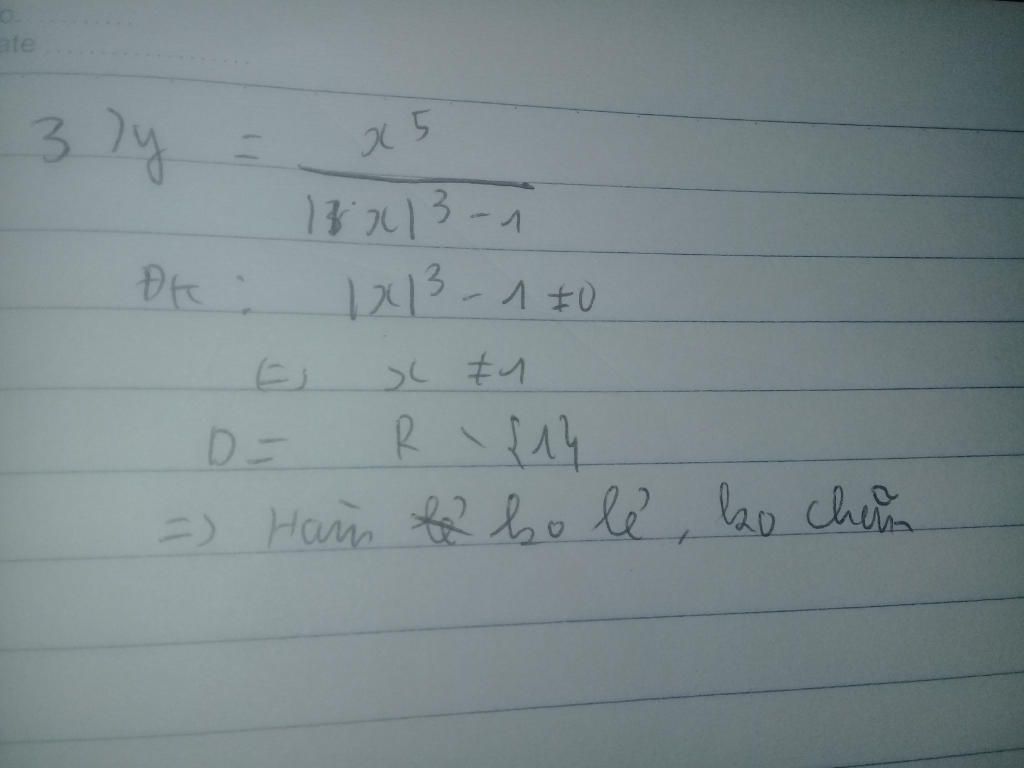 o.
ate
3) y = x⁵ / |x|³ - 1
ĐK: |x|³ - 1 ≠ 0
⇔ x ≠ 1
D = R \ {1}
=> Hàm ko lẻ, ko chẵn